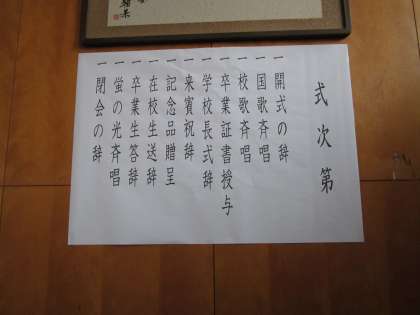 式次第
一 開式の辞
一 国歌斉唱
一 校歌斉唱
一 卒業証書授与
一 学校長式辞
一 来賓祝辞
一 記念品贈呈
一 在校生送辞
一 卒業生答辞
一 蛍の光斉唱
一 閉会の辞